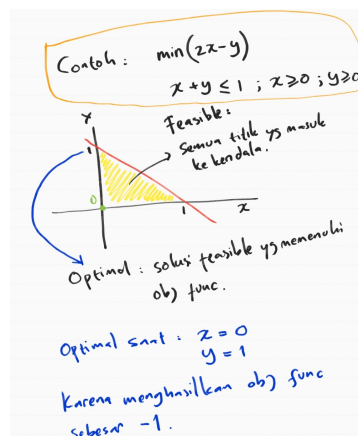 Contoh : min(2x-y)
x+y ≤ 1 ; x≥0 ; y≥0
Y
Feasible:
Semua titik yg masuk
ke kendala.
1
0
1
x
Optimal : solusi feasible yg memenuhi
obj func.
Optimal saat : x = 0
y = 1
Karena menghasilkan obj func
sebesar -1.